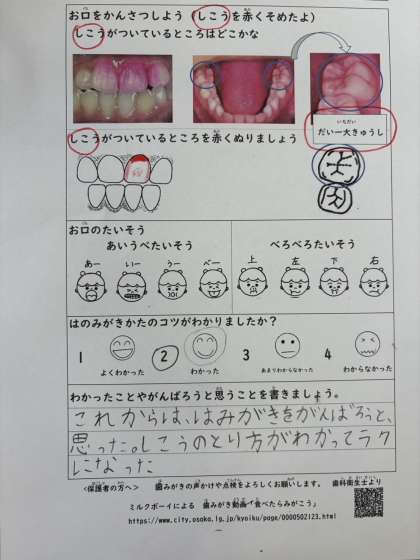 お口をかんさつしよう（しこうを赤くそめたよ）
しこうがついているところはどこかな
いちだい
だい一大きゅうし
しこうがついているところを赤くぬりましょう
お口のたいそう
あいうべたいそう
べろべろたいそう
あー いー うー べー
上 左 下 右
はのみがきかたのコツがわかりましたか？
1 2 3 4
よくわかった わかった あまりわからなかった わからなかった
わかったことやがんばろうと思うことを書きましょう。
これからは、はみがきをがんばろうと、
思った。しこうのとり方がわかってラク
になった
<保護者の方へ> 歯みがきの声かけや点検をよろしくお願いします。 歯科衛生士より
ミルクボーイによる 歯みがき動画「食べたらみがこう」
https://www.city.osaka.lg.jp/kyoiku/page/0000502123.html